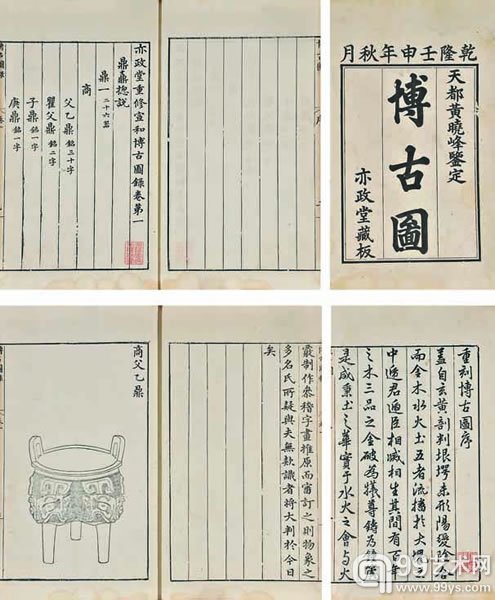 乾隆壬申年秋月
天都黃曉峰鑒定
博古圖
亦政堂藏板
亦政堂重修宣和博古圖錄卷第一
鼎鼒總說
鼎一 二十六器
商
父乙鼎 銘字
瞿父鼎 銘二字
子鼎 銘一字
庚鼎 銘一字
重刻博古圖序
蓋自玄黃剖判垠堮未形陽陰
而金木水火土五者流播於大
中遞君遞臣相滅相生其間有百年
之木三品之金破為犧尊鑄為
是咸土之華實于水火之會火
制作參稽字畫推原而審訂之則物象之
多名氏所疑與夫無款識者將大判於今日
矣
商父乙鼎
99艺术网
www.99ys.com